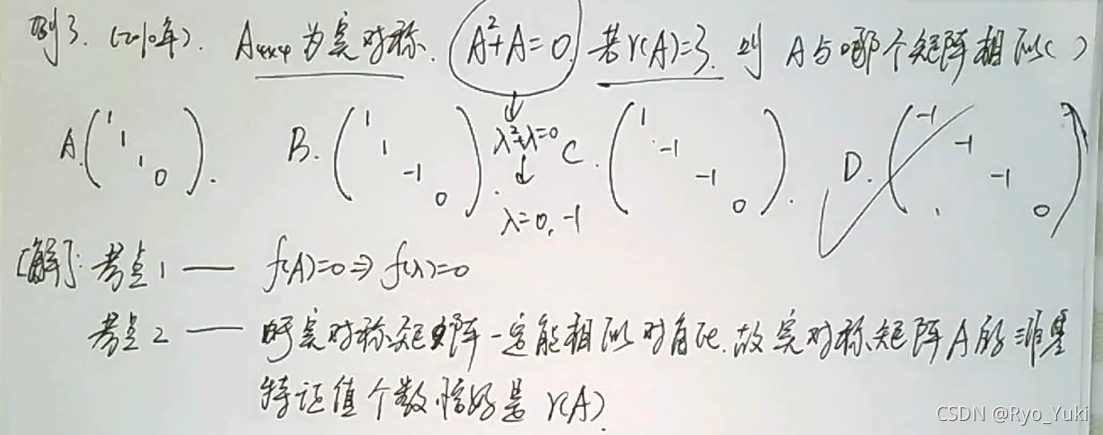 例3. (2010年). A₄ₓ₄为实对称. A²+A=0. 若r(A)=3. 则 A与哪个矩阵相似( )
A. (1 1 1 0). B. (1 1 -1 0). C. (1 -1 -1 0). D. (-1 -1 -1 0)
↓
λ²+λ=0
↓
λ=0, -1
[解]: 考点1 — f(A)=0⇒f(λ)=0
考点2 — 实对称矩阵一定能相似对角化. 故实对称矩阵A的非零
特征值个数恰好是 r(A)
CSDN @Ryo_Yuki